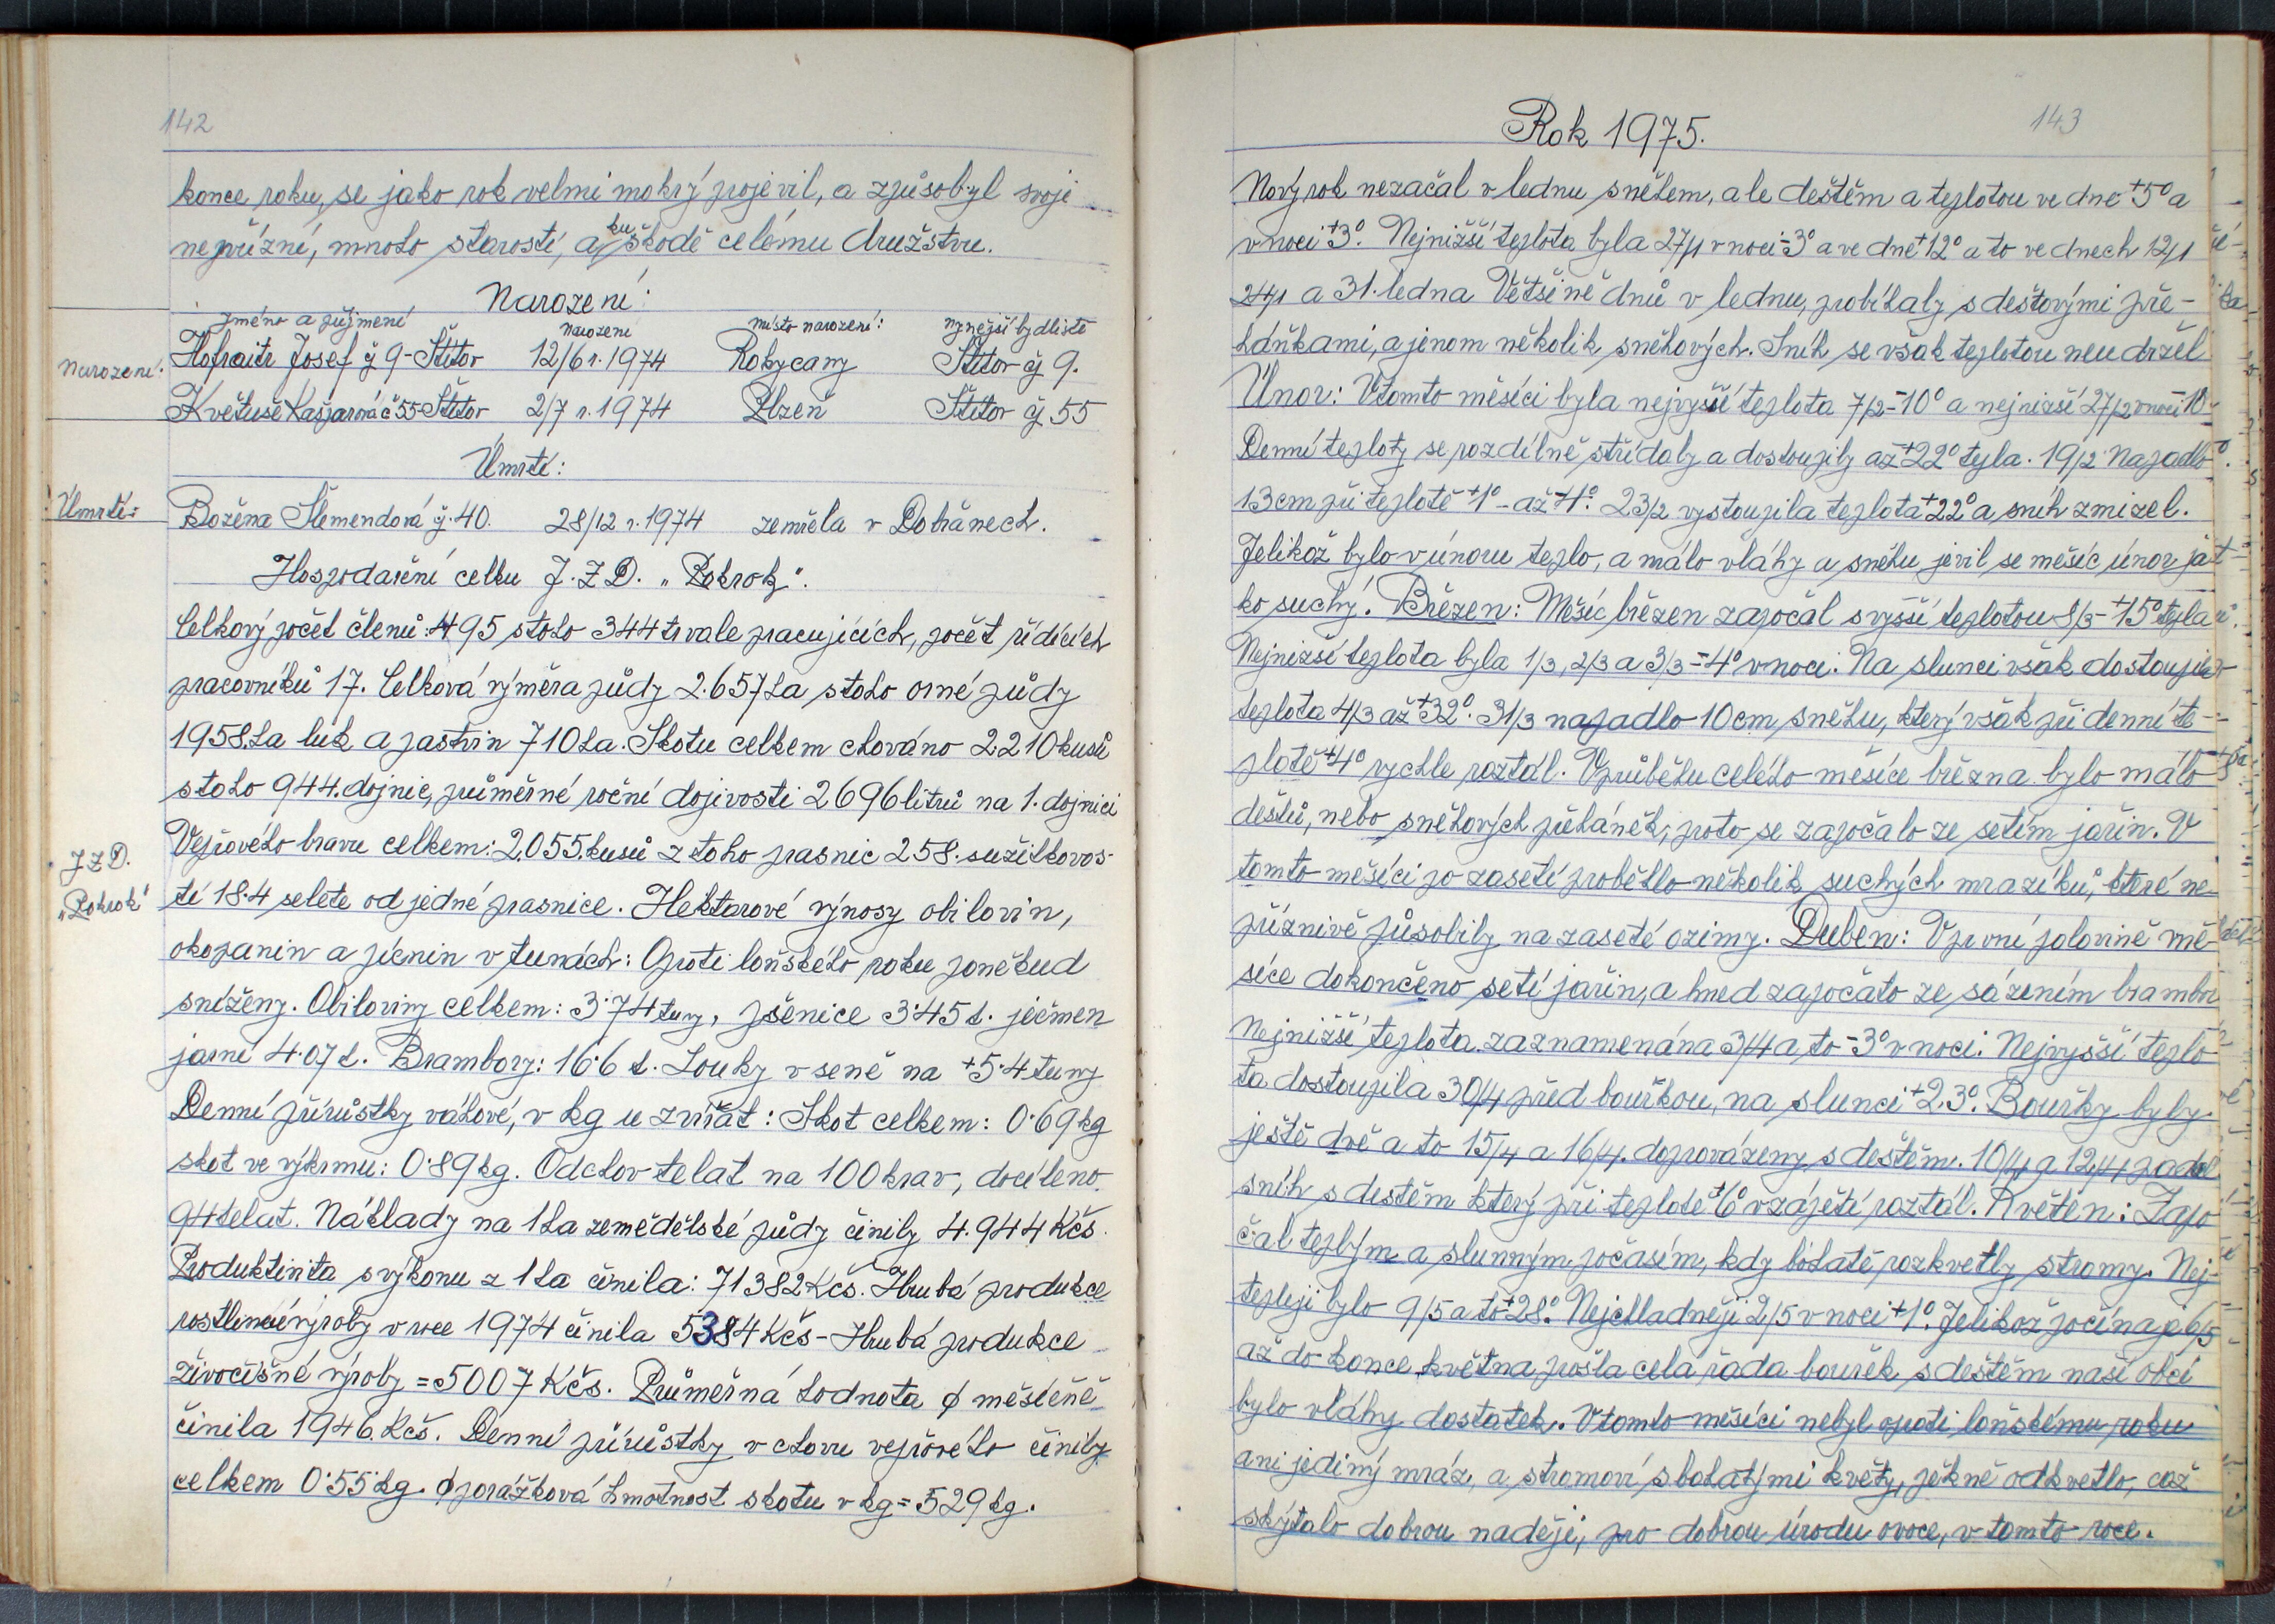 142
konce roku, se jako rok velmi mokrý projevil, a způsobyl svoji
nepřízní, mnoho starostí, a ku škodě celému družstvu.
Narození:
jméno a příjmení narození místo narození: nynější bydliště
Narození: Hofraitr Josef č. 9-Štítov 12/6 r. 1974 Rokycany Štítov čj 9.
Květuše Kašparová č 55-Štítov 2/7 r. 1974 Plzeň Štítov čj. 55
Úmrtí:
Úmrtí: Božena Šlemendová čj. 40. 28/12 r. 1974 zemřela v Dobřanech.
Hospodaření celku J.Z.D. „Pokrok".
Celkový počet členů: 495 stoho 344 trvale pracujících, počet řídících
pracovníků 17. Celková výměra půdy 2.657 ha stoho orné půdy
1958.ha luk a pastvin 710 ha. Skotu celkem chováno 2210 kusů
stoho 944. dojnic, průměrné roční dojivosti 2696 litrů na 1. dojnici
Vepřového bravu celkem: 2.055. kusů z toho prasnic 258. sužitkovos-
J Z D.
„Pokrok"
tí 18.4 selete od jedné prasnice. Hektarové výnosy obilovin,
okopanin a pícnin v tunách: Oproti loňského roku poněkud
sníženy. Obiloviny celkem: 3.74 tuny, pšenice 3.45 t. ječmen
jarní 4.07 t. Brambory: 16.6 t. Louky v seně na +5.4 tuny
Denní přírůstky váhové, v kg u zvířat: Skot celkem: 0.69 kg
skot ve výkrmu: 0.89 kg. Odchov telat na 100 krav, docíleno
94 telat. Náklady na 1 ha zemědělské půdy činily 4.944 Kčs.
Produktivita s výkonu z 1 ha činila: 71382 Kčs. Hrubá produkce
rostlinné výroby v roce 1974 činila 5384 Kčs - Hrubá produkce
živočišné výroby = 5007 Kčs. Průměrná hodnota ϕ měsíčně
činila 1946. Kčs. Denní přírůstky v chovu vepřového činily
celkem 0.55 kg. ϕ porážková hmotnost skotu v kg = 529 kg.
Rok 1975.
143
Nový rok nezačal v lednu sněhem, ale deštěm a teplotou ve dne +5° a
v noci +3°. Nejnižší teplota byla 27/1 v noci -3° a ve dne +12° a to ve dnech 12/1
24/1 a 31. ledna Většině dnů v lednu, probíhaly s dešťovými pře-
háňkami, a jenom několik sněhových. Sníh se však teplotou neudržel
Únor: V tomto měsíci byla nejvyšší teplota 7/2 -10° a nejnižší 27/2 v noci -10
Denní teploty se rozdílně střídaly a dostoupily až +22° tepla. 19/2 Napadlo
13 cm při teplotě +1° - až +4°. 23/2 vystoupila teplota +22° a sníh zmizel.
Jelikož bylo v únoru teplo, a málo vláhy a sněhu jevil se měsíc únor ja
ko suchý. Březen: Měsíc březen započal s vyšší teplotou 8/3 - +15° tepla
Nejnižší teplota byla 1/3, 2/3 a 3/3 = -4° v noci. Na slunci však dostoupila
teplota 4/3 až +32°. 31/3 napadlo 10 cm sněhu, který však při denní te-
plotě +4° rychle roztál. V průběhu celého měsíce března bylo málo
dešťů, nebo sněhových přeháněk, proto se započalo ze setím jařin. V
tomto měsíci po zasetí proběhlo několik suchých mrazíků, které ne-
příznivě působily na zaseté ozimy. Duben: V první polovině mě-
síce dokončeno setí jařin, a hned započato ze sázením brambor
Nejnižší teplota zaznamenána 3/4 a to -3° v noci. Nejvyšší teplo
ta dostoupila 30/4 před bouřkou, na slunci +23°. Bouřky byly
ještě dvě a to 15/4 a 16/4. doprovázeny s deštěm. 10/4 a 12/4 padal
sníh s destěm který při teplotě +6° vzápětí roztál. Květen: Zapo
čal teplým a slunným počasím, kdy bohatě rozkvetly stromy. Nej-
tepleji bylo 9/5 a to +28°. Nejchladněji 2/5 v noci +1°. Jelikož počínaje 6/5
až do konce května prošla celá řada bouřek s deštěm naší obcí
bylo vláhy dostatek. V tomto měsíci nebyl oproti loňskému roku
ani jediný mráz, a stromoví s bohatými květy, pěkně odkvetlo, což
skýtalo dobrou naději, pro dobrou úrodu ovoce, v tomto roce.